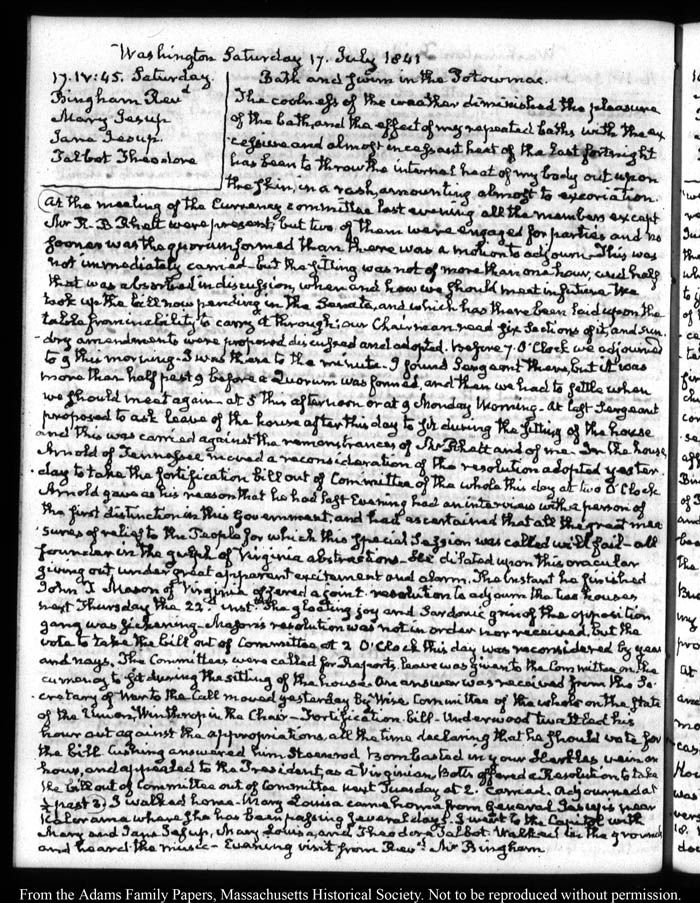 Washington Saturday 17. July 1841
17. IV:45. Saturday.
Bingham Revd
Mary Jesup
Jane Jesup.
Talbot Theodore
Bath and swim in the Potowmac.
The coolness of the weather diminished the pleasure
of the bath, and the effect of my repeated baths with the ex
cessive and almost incessant heat of the last fortnight
has been to throw the internal heat of my body out upon
the skin, in a rash, amounting almost to excoriation.
At the meeting of the Currency Committee last evening all the members except
Mr R. B Rhett were present; but two of them were engaged for parties and no
sooner was the quorum formed than there was a motion to adjourn. This was
not immediately carried but the sitting was not of more than one hour, and half
that was absorbed in discussion, when and how we should meet in future. We
took up the bill now pending in the Senate, and which has there been laid upon the
table from inability to carry it through; our Chairman read six Sections of it, and sun
dry amendments were proposed discussed and adopted. Before 7. O'Clock we adjourned
to 9 this morning. I was there to the minute. I found Sergeant there, but it was
more than half past 9 before a Quorum was formed, and then we had to settle when
we should meet again at 5 this afternoon or at 9 Monday Morning. At last Sergeant
proposed to ask leave of the house after this day to sit during the sitting of the house
and this was carried against the remonstrances of Mr Rhett and of me. In the house,
Arnold of Tennessee moved a reconsideration of the resolution adopted yester
day to take the fortification bill out of Committee of the whole this day at two O'Clock
Arnold gave as his reason that he had last Evening had an interview with a person of
the first distinction in this Government, and had ascertained that all the great mea
sures of relief to the People for which this special Session was called will fail—all
founder in the gulph of Virginia abstractions. He dilated upon this oracular
giving out under great apparent excitement and alarm. The instant he finished
John T Mason of Virginia offered a joint resolution to adjourn the two houses
next Thursday the 22d inst. The gloating joy and Sardonic grin of the opposition
gang was sickening. Mason's resolution was not in order nor received, but the
vote to take the bill out of Committee at 2 O'Clock this day was reconsidered by yeas
and nays. The Committees were called for Reports, leave was given to the Committee on the
currency to sit during the sitting of the house. An answer was received from the Se
cretary of War to the Call moved yesterday by Wise. Committee of the whole on the state
of the Union, Winthrop in the Chair—Fortification bill. Underwood twattled his
hour out against the appropriations, all the time declaring that he should vote for
the bill. Cushing answered him. Steenrod Bombasted in your Hercles vein an
hour, and appealed to the President, as a Virginian. Botts offered a Resolution to take
the bill out of Committee out of Committee next Tuesday at 2. Carried. Adjourned at
½ past 3; I walked home. Mary Louisa came home from General Jesup's near
Kalorama where she has been passing several days. I went to the Capitol with
Mary and Jane Jesup, Mary Louisa, and Theodore Talbot. Walked in the grounds
and heard the music—Evening visit from Revd Mr Bingham
From the Adams Family Papers, Massachusetts Historical Society. Not to be reproduced without permission.